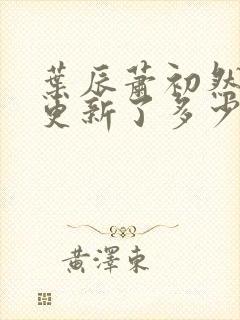 葉辰蕭初然
更新了多少
黃澤東